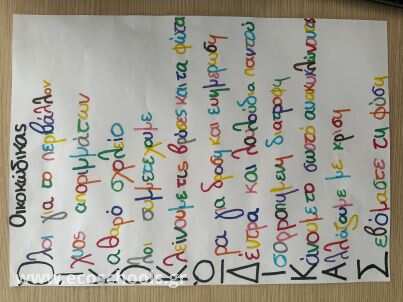 Οικοκώδικας
Όλοι για το περβάλλον
Ίχνος απορριμμάτων
Καθαρό σχολείο
Όλοι συμμετέχουμε
Κλείνουμε τις βρύσες και τα φώτα
Ώρα για δράση και ενημέρωση
Δέντρα και λουλούδια παντού
Ισορροπημένη διατροφή
Κάνουμε το σωστό ανακυκλώνουμε
Αλλάζουμε με κρίση
Σεβόμαστε τη φύση
www.ecoschools.gr